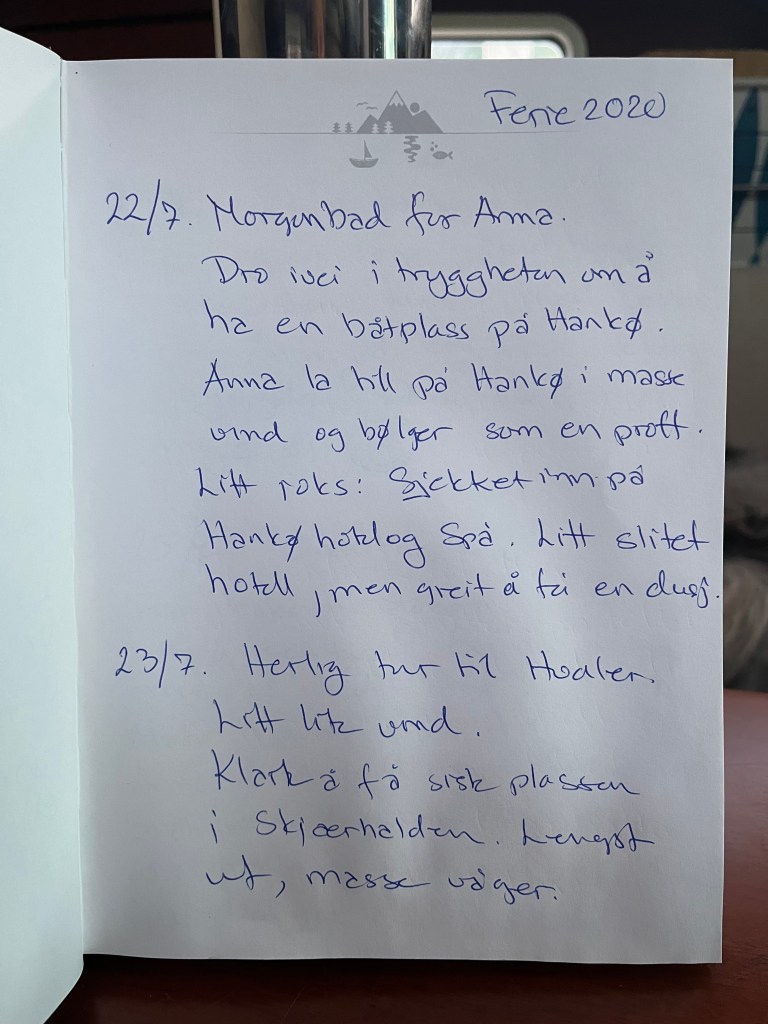 Ferie 2020
22/7. Morgenbad for Anna.
Dro ivei i tryggheten om å
ha en båtplass på Hankø.
Anna la till på Hankø i masse
vind og bølger som en proff.
Litt joks: Sjekket inn på
Hankø hotell og Spa. Litt slitet
hotell, men greit å få en dusj.
23/7. Herlig tur til Hvaler.
Litt lite vind.
Klarte å få sist plassen
i Skjærhalden. Lengst
ut, masse våger.